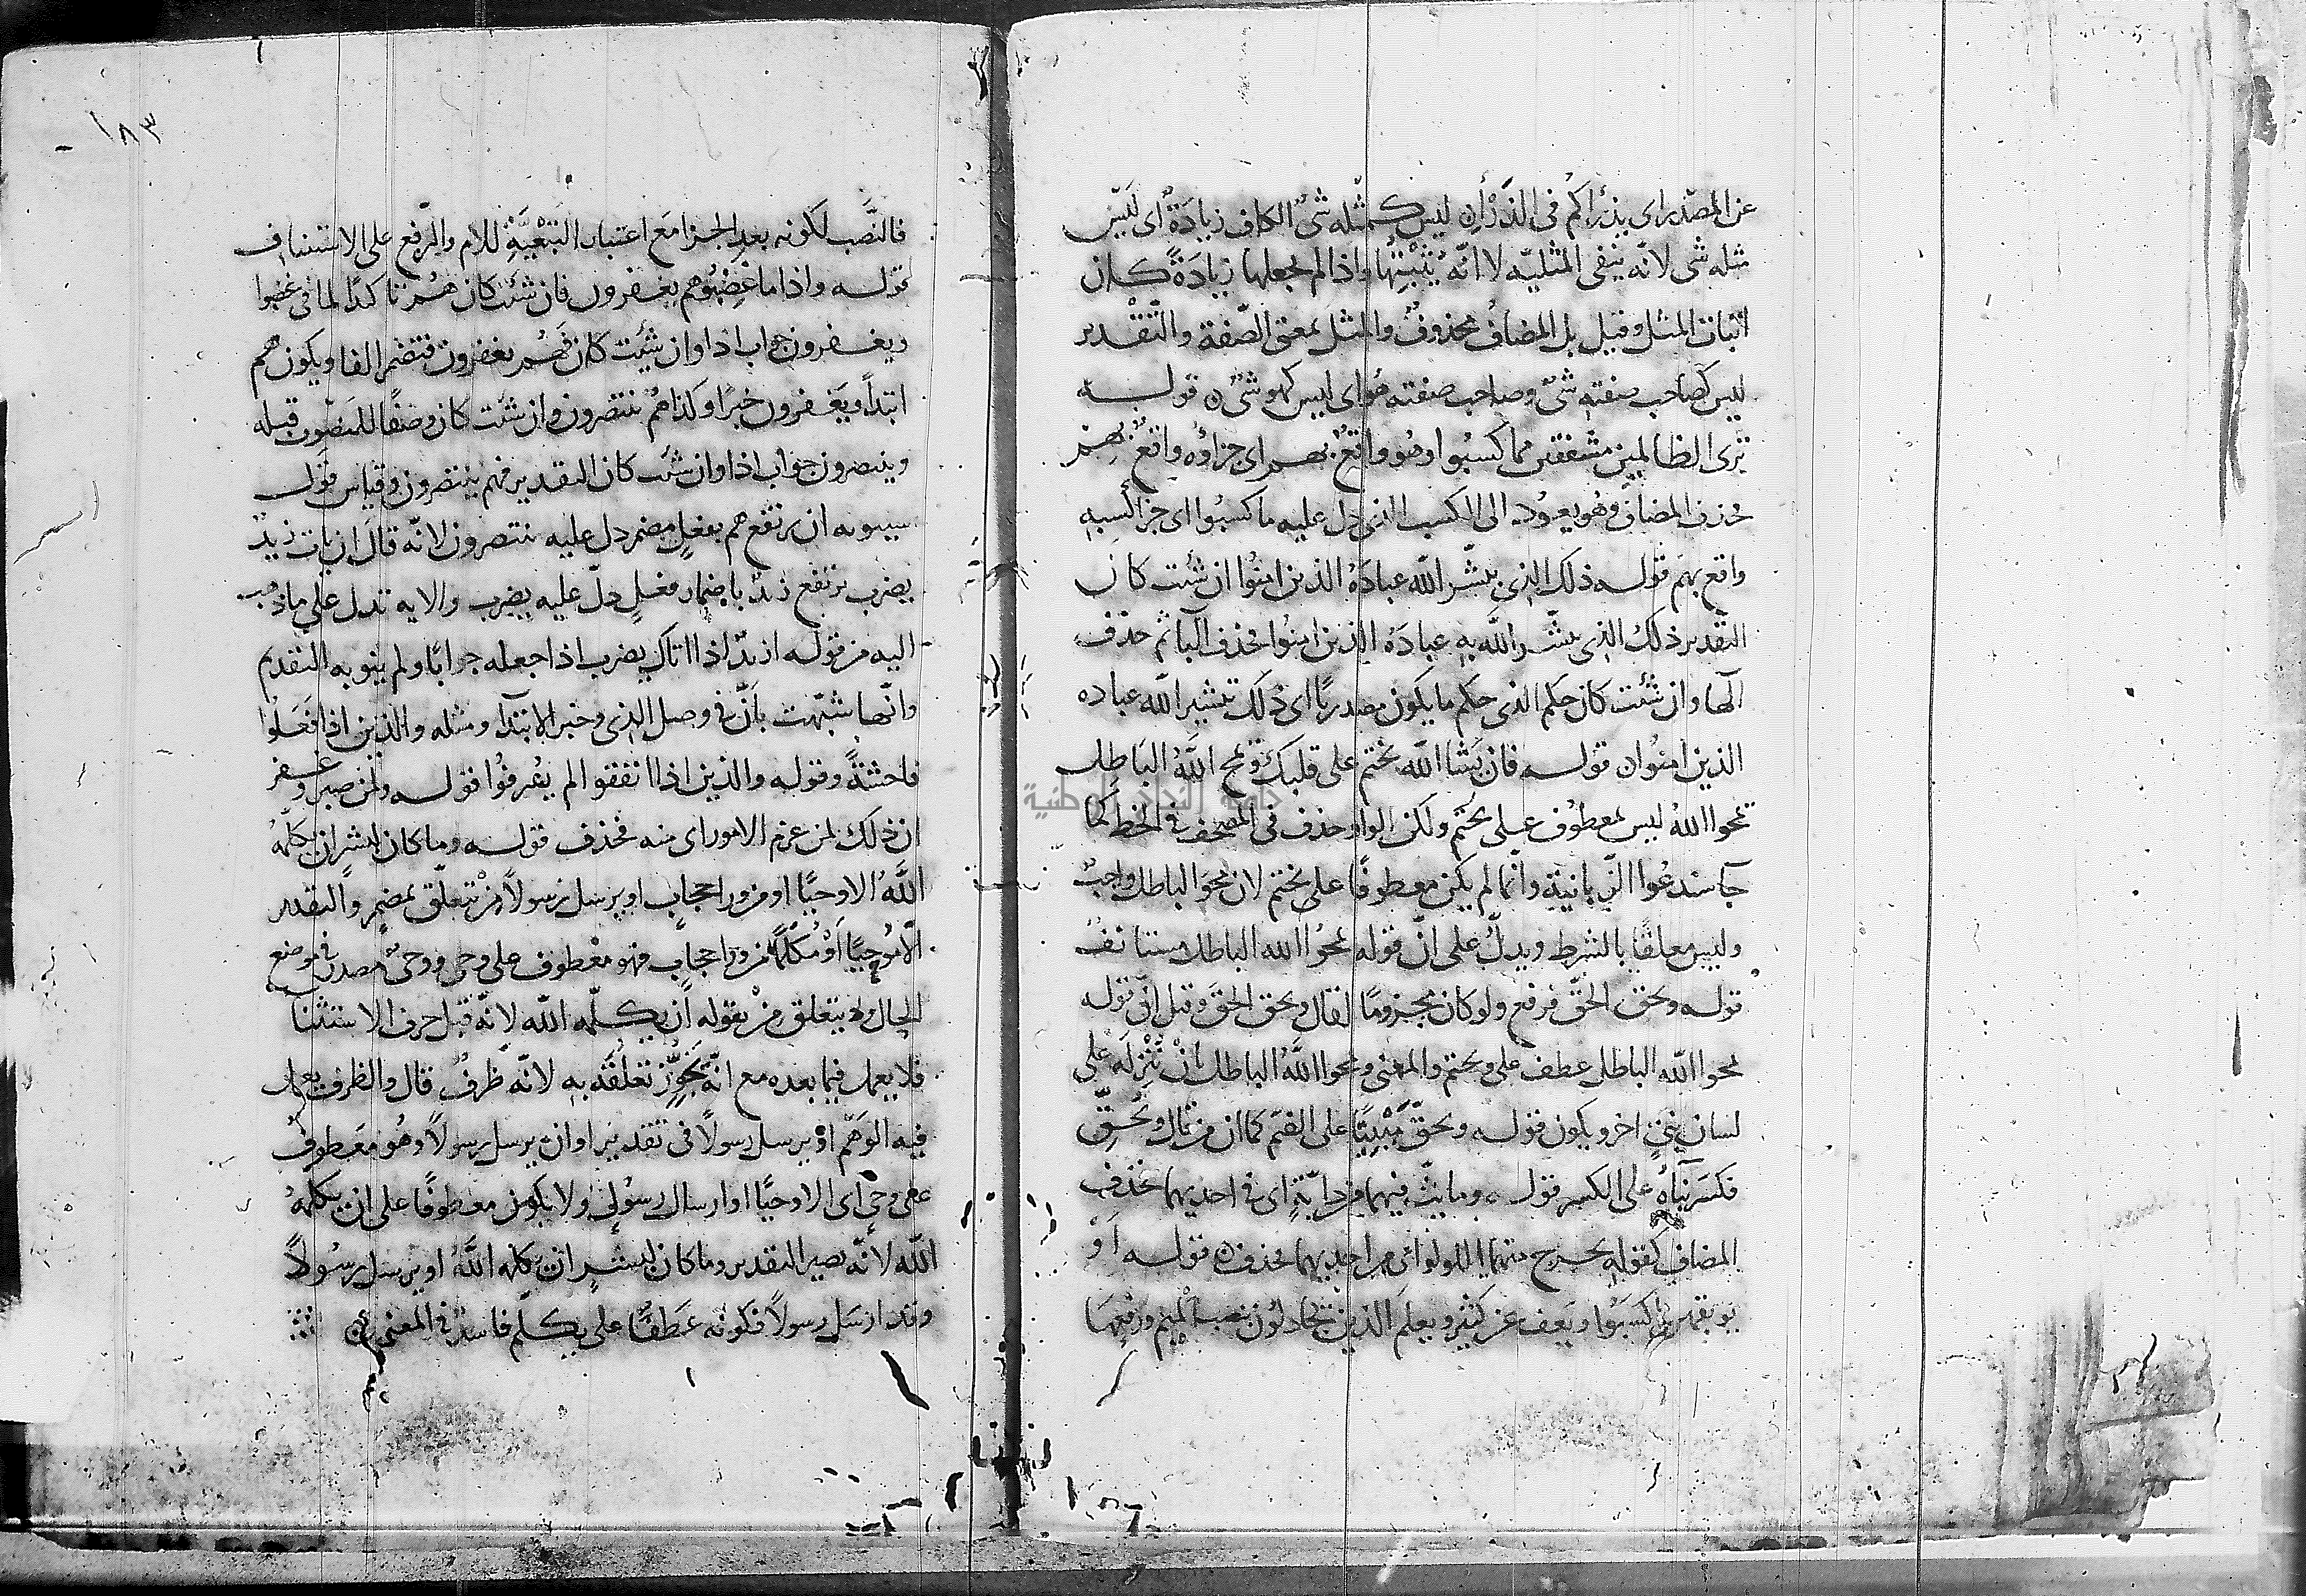 عن المصدر اى يذرأكم فى الذرأ ن ليس كمثله شىٌ الكاف زيادَةٌ اى ليس
مثله شى لانّه ينفى المثليّه لا انّه يُثبْتُها واذا لم يجعلها زيادَةً كان
اثبات المثل وقيل بل المضاف محذوفٌ والمثل بمعنى الصّفة والتّقدير
ليس كصاحب صفته شىٌ وصاحب صفته هُو اى ليس كهو شىٌ ن قوله
ترى الظالمين مشفقين مما كسبُوا وهُو واقعٌ بهم اى جزاؤه واقعٌ بهم
فحذف المضاف وهُو يعُود الى الكسب الذى دل عليه ما كسبُوا اى جزا كسبه
واقع بهم قوله ذلك الذى يبشّر الله عبادَهُ الذين امنُوا ان شئت كان
التقدير ذلك الذى يبشّر الله به عبادَهُ الذين امنُوا فحذف البا ثم حذف
الها وان شئت كان حكم الذى حكم ما يكون مصدريًا اى ذلك تبشير الله عباده
الذين امنُوا ن قوله فان يَشا الله يختم على قلبك ويمح اللهُ الباطل
يمحوا اللهُ ليس بمعطوف على يختم ولكن الواو حذف فى المصحف فى الخط كما
جآ سندعُوا الزّبانية وانّما لم يكن معطوفًا على يختم لان محوَ الباطل واجبٌ
وليس معلقًا بالشرط ويدلّ على انّ قوله يمحُوا الله الباطل مستانفٌ
قوله ويحق الحقّ فرفع ولو كان مجزومًا لقال ويحق الحقَ وقيل انّ قوله
يمحوا الله الباطل عطف على ويختم والمعنى ويمحوا اللهُ الباطل بانْ يُنْزِلَه على
لسان نبىٍ اخر ويكون قوله ويحقّ مَبْنِيًّا على الضم كما ان من قال ويُحقّ
فكسر بناهُ على الكسر قوله وما بثّ فيهما من دابّةٍ اى فى احديهما فحذف
المضاف كقوله يخرج منهما اللولو اى من احديهما فحذف ن قوله اوْ
يوبقهن بما كسبُوا ويَعف عن كثير ويعلمَ الذين يجادلون نصب الميم ورفعها
١٨٣
فالنَّصب لكونه بعد الجزا مع اعتبار التَبْعيَّةِ للام والرّفع على الاستيناف
قوله واذا ما غضبُوا هم يغفرون فان شئت كان هُم تاكدًا لما فى غضبوا
ويغفرون جواب اذا وان شئت كان فَهُم يغفرون فتضمر الفا ويكون هم
ابتداً ويَغفرون خبرًا وكذا هُم ينتصرون وان شئت كان وصفًا للمنصوب قبله
وينتصرون جواب اذا وان شئت كان التقدير فهم ينتصرون وقياس قول
سيبويه ان يرتفع هم بفعلٍ مضمر دل عليه ينتصرون لانّه قال ان يات زيدٌ
يضرب يرتفع زيدٌ باضمار فعلٍ دلّ عليه يضرب والايه تدل على ما ذهب
اليه من قوله ان زيدٌ اذا اتاك يضرب اذا جعله جوابًا ولم ينو به التقديم
وانّها شبّهت بانّ فى وصل الذى وخبر الابتدآ ومثله والذين اذا فعَلُوا
فاحشةً وقوله والذين اذا انفقوا لم يسْرفُوا قوله ولمن صبر وغفر
ان ذلك لمن عزم الامور اى منه فحذف قوله وما كان لبشر ان يكلّمهُ
اللّهُ الا وحيًا او من ورا حجاب او يرسل رسولاً مِنْ يتعلّق بمضمر والتقدير
الّا مُوحِيًا اَوْ مُكَلِّمًا من ورا حجاب فهو معطوف على وحى ووحىٌ مصدر فى موضع
الحال ولا يتعلق مِنْ بقوله اَن يكلّمه الله لانّه قبل حرف الاستثنا
فلا يعمل فيما بعده مع انّه يَجُوّز تعلُقَه به لانّه ظرفٌ قال والظرف يعمل
فيه الوَهْم اوْ يرسل رسولاً فى تقدير او ان يرسل رسولاً وهُو معطوف
على وحىٍ اى الا وحيًا او ارسال رسُولٍ ولا يكون معطوفًا على ان يكلمهُ
الله لانّه يصير التقدير وما كان لبشرٍ ان يكلمه اللّهُ او يرسل رسُولاً
وقد ارسَل رسولاً فكونه عَطَفًا على يكلّم فاسدٌ فى المعنى